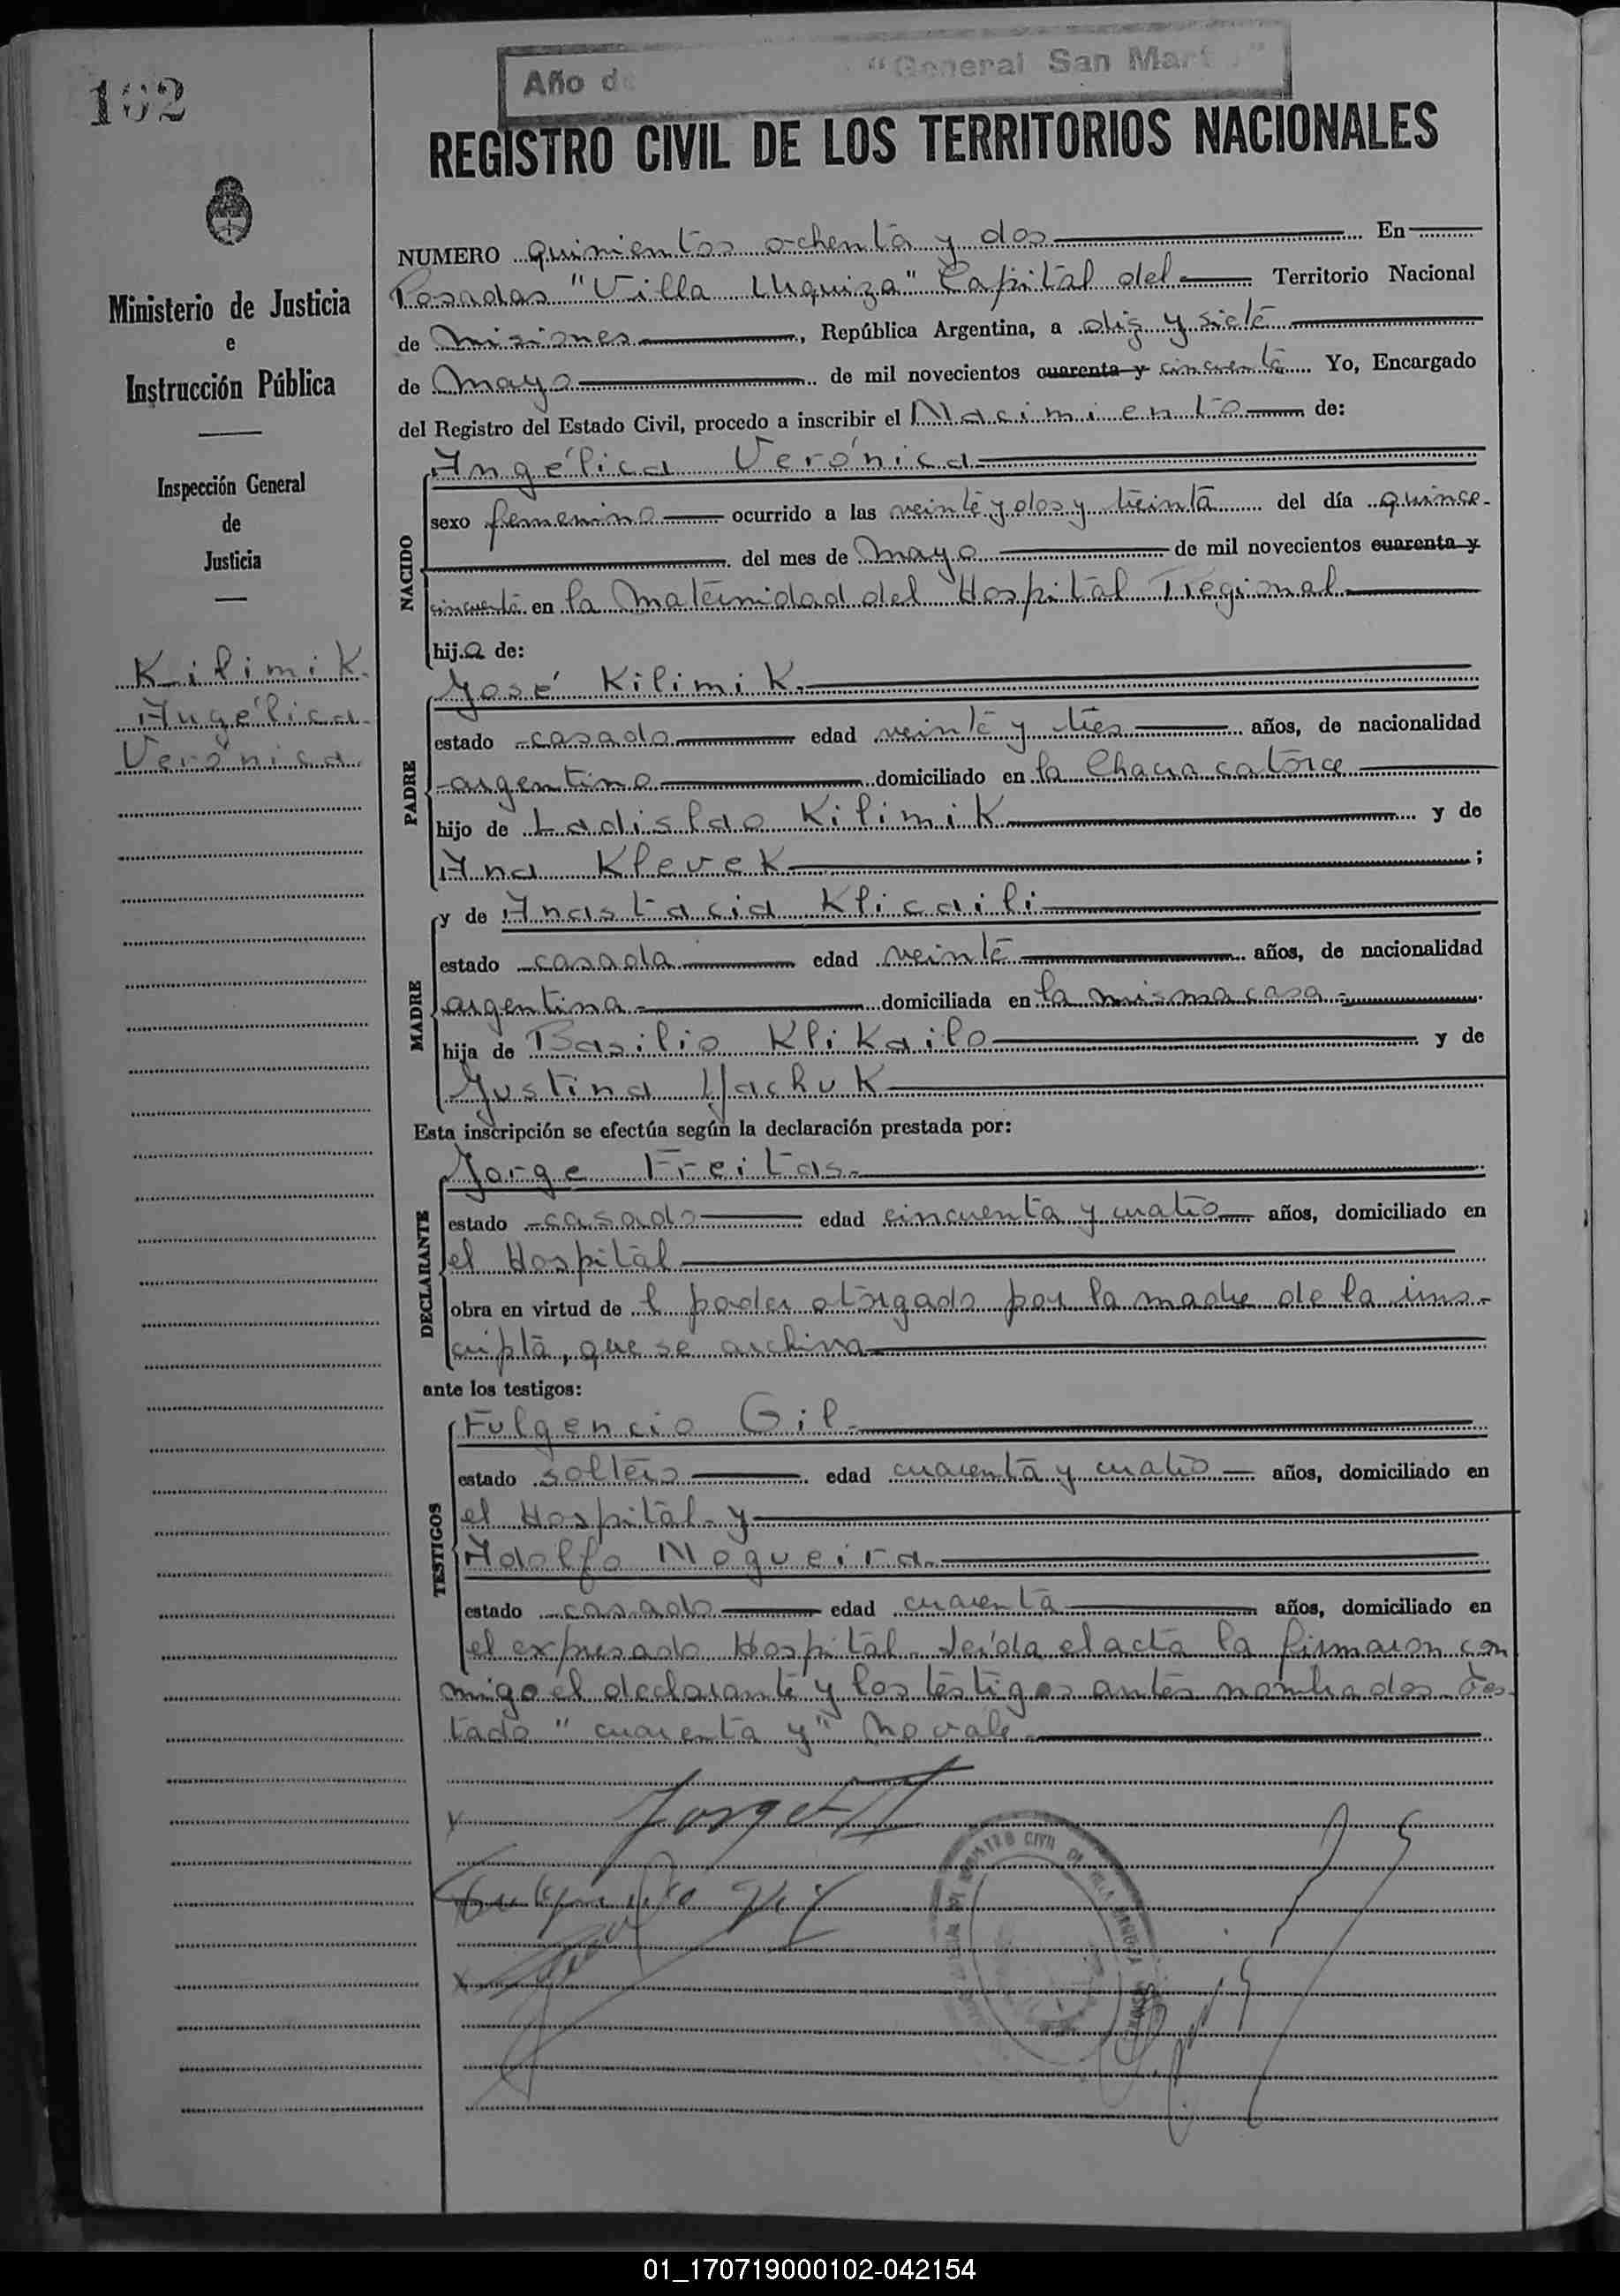 102
Año de "General San Mart
REGISTRO CIVIL DE LOS TERRITORIOS NACIONALES
Ministerio de Justicia
e
Instrucción Pública
Inspección General
de
Justicia
Kilimik.
Angélica
Verónica.
NUMERO quinientos ochenta y dos En
Posadas "Villa Urquiza" Capital del Territorio Nacional
de Misiones, República Argentina, a diez y siete
de Mayo de mil novecientos cuarenta y cincuenta Yo, Encargado
del Registro del Estado Civil, procedo a inscribir el Nacimiento de:
Angélica Verónica
NACIDO
sexo femenino ocurrido a las veinte y dos y treinta del día quince
del mes de Mayo de mil novecientos cuarenta y
cincuenta en la Maternidad del Hospital Regional
hija de:
José Kilimik.
PADRE
estado casado edad veinte y tres años, de nacionalidad
argentino domiciliado en la Chacra catorce
hijo de Ladislao Kilimik y de
Ana Klevek;
y de Anastacia Klicaili
MADRE
estado casada edad veinte años, de nacionalidad
argentina domiciliada en la misma casa
hija de Basilio Klikailo y de
Justina Yachuk
Esta inscripción se efectúa según la declaración prestada por:
Jorge Freitas.
DECLARANTE
estado casado edad cincuenta y cuatro años, domiciliado en
el Hospital
obra en virtud de l poder otorgado por la madre de la ins-
cripta, que se archiva
ante los testigos:
Fulgencio Gil.
TESTIGOS
estado soltero edad cuarenta y cuatro años, domiciliado en
el Hospital y
Adolfo Nogueira.
estado casado edad cuarenta años, domiciliado en
el expresado Hospital. Leída el acta la firmaron con
migo el declarante y los testigos antes nombrados. Tes-
tado "cuarenta y" No vale.
Jorge
REGISTRO CIVIL DE VILLA URQUIZA
01_170719000102-042154